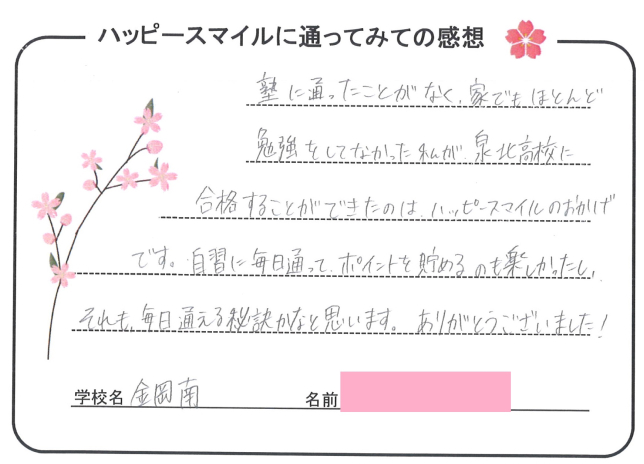 ハッピースマイルに通ってみての感想
塾に通ったことがなく、家でもほとんど
勉強をしてなかった私が、泉北高校に
合格することができたのは、ハッピースマイルのおかげ
です。自習に毎日通って、ポイントを貯めるのも楽しかったし、
それも、毎日通える秘訣かなと思います。ありがとうございました!
学校名 金岡南 名前